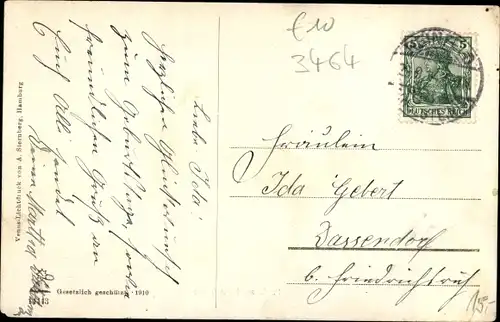 £10
3464
Liebe Ida!
Herzliche Glückwunsch
zum Geburtstage, sowie
freundlichen Gruß an
Euch Alle sendet
Deine Martha
Fräulein
Ida Gebert
Dassendorf
b. Friedrichsruh
15,-
Venus-Lichtdruck von A. Sternberg, Hamburg
Gesetzlich geschützt 1910
DEUTSCHES REICH
5